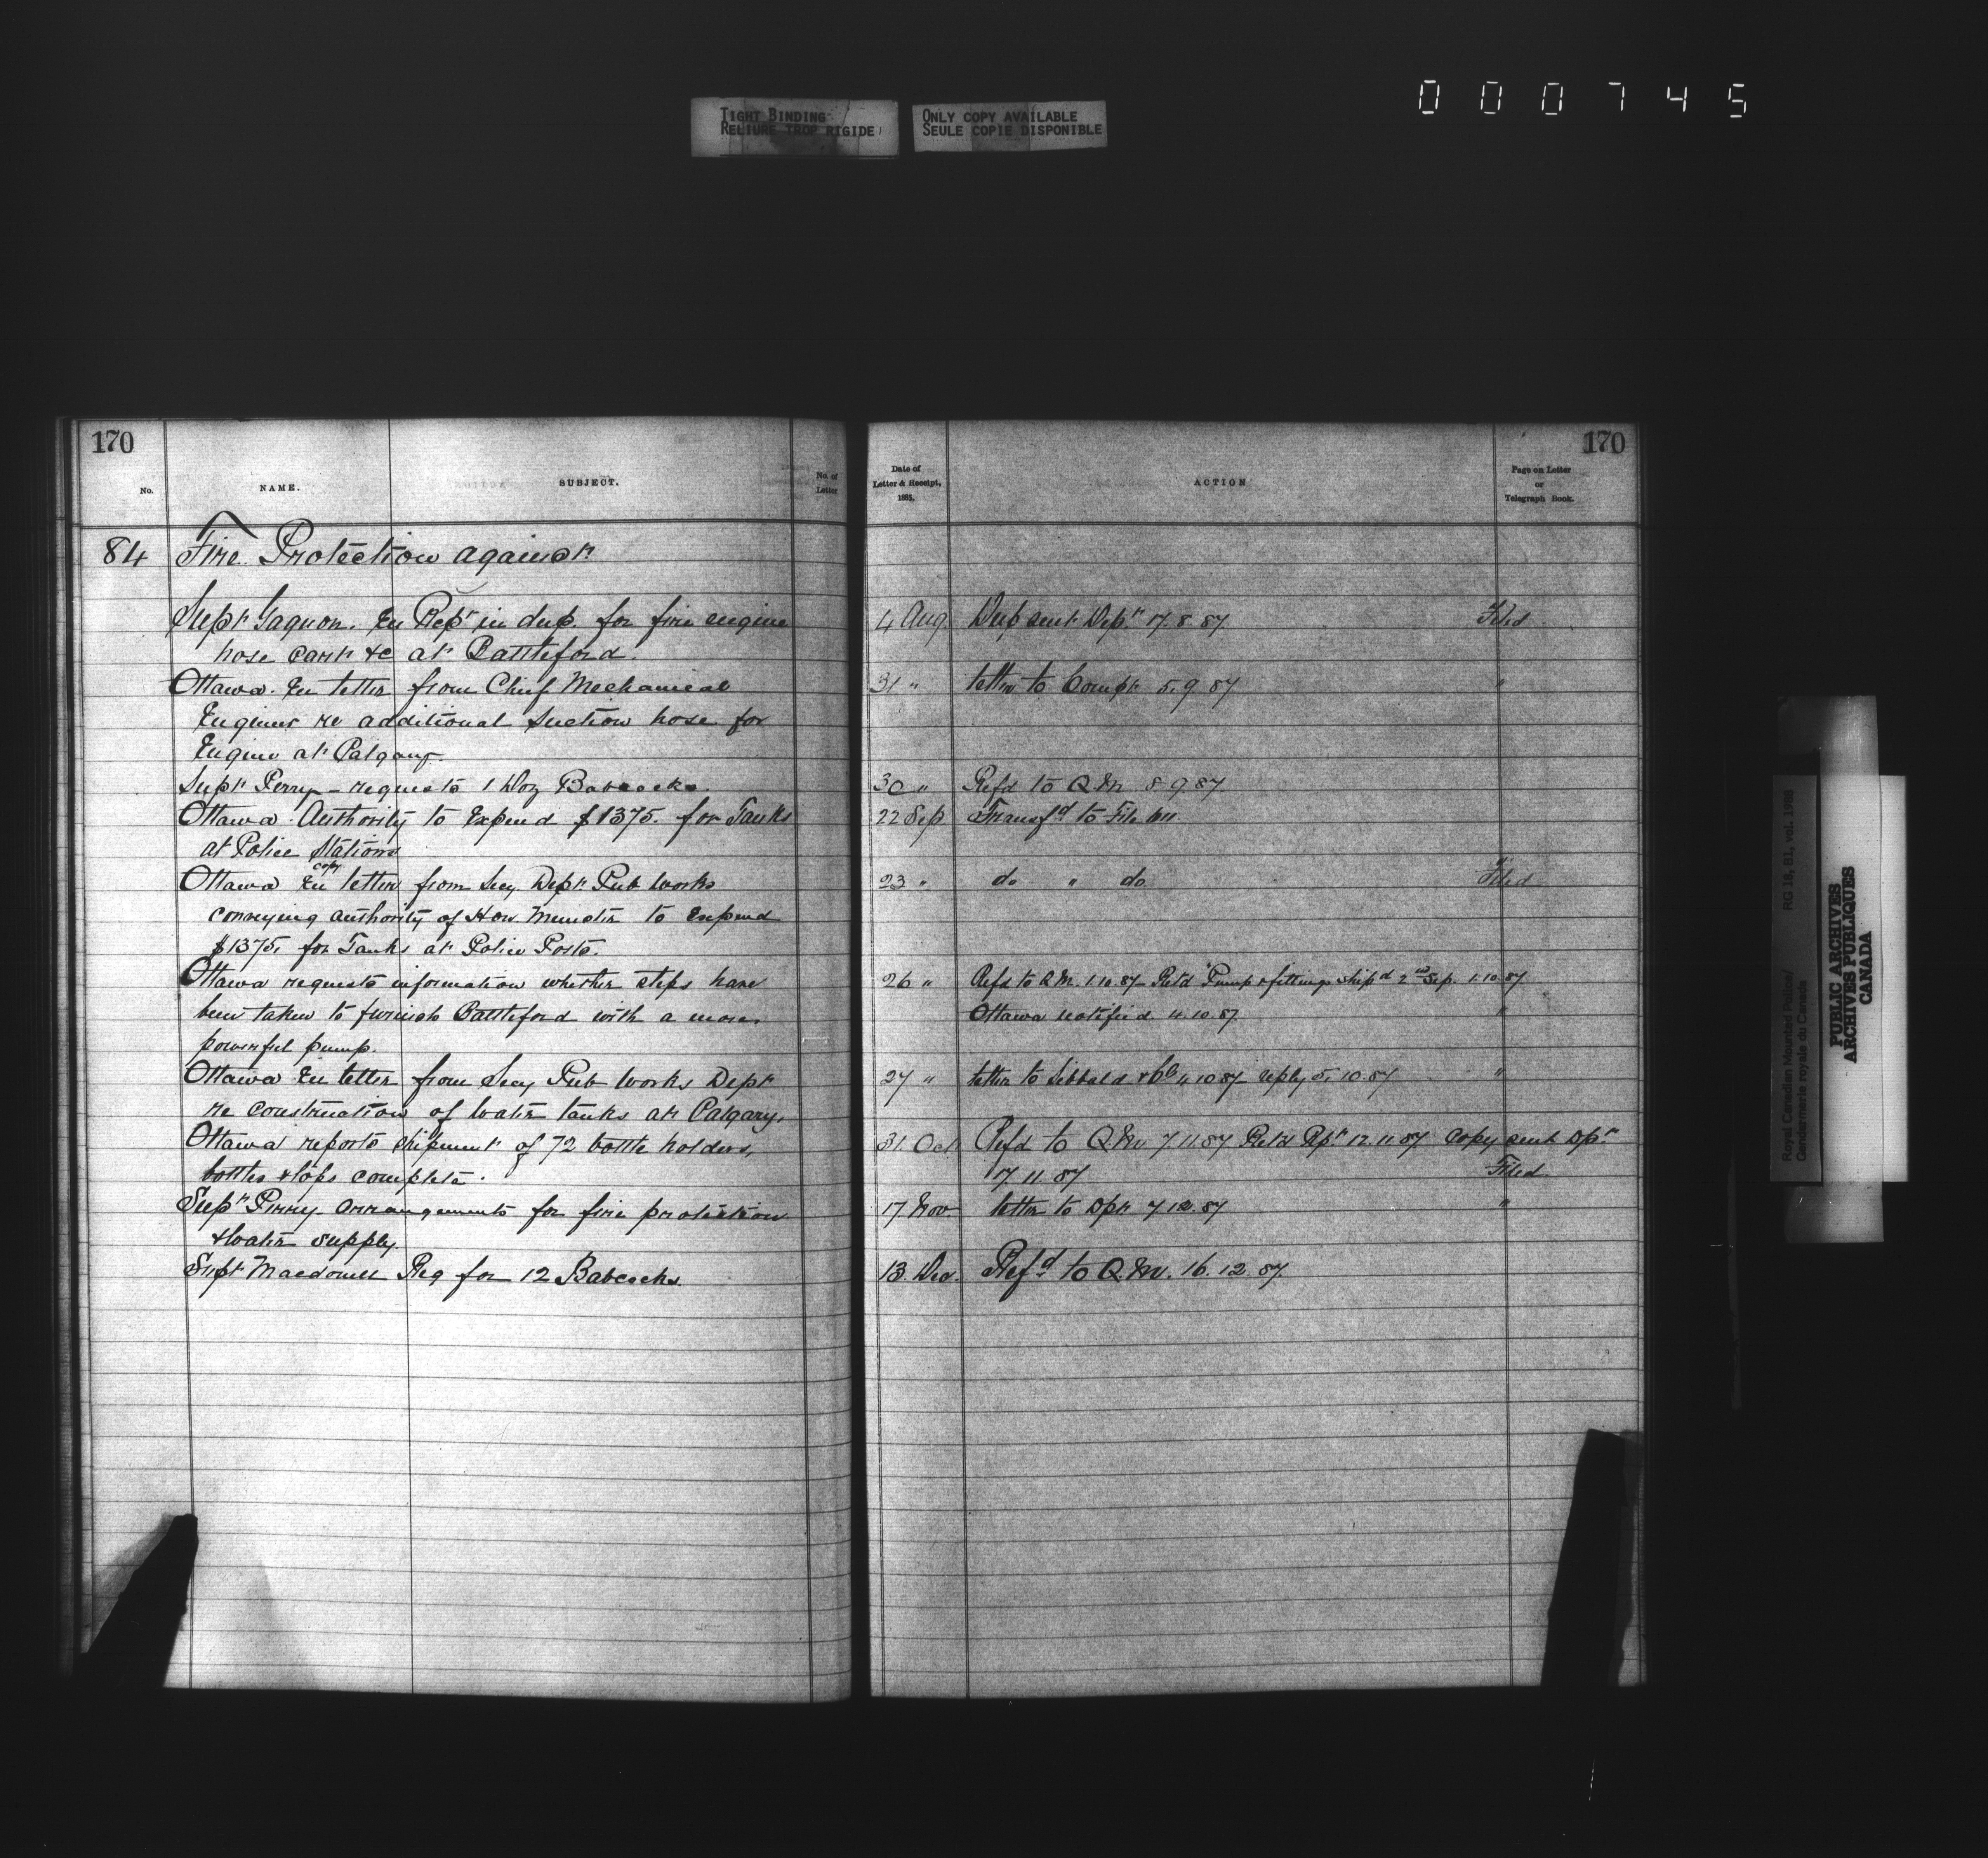 000745
TIGHT BINDING
RELIURE TROP RIGIDE
ONLY COPY AVAILABLE
SEULE COPIE DISPONIBLE
170
No.
NAME.
SUBJECT.
No. of
Letter
84 Fire Protection against
Supt Gagnon. En Rept in dup. for fire engine
hose cart &c at Battleford.
Ottawa. En letter from Chief Mechanical
Engineer re additional suction hose for
Engine at Calgary.
Supt Perry – requests 1 Doz Babcocks.
Ottawa. Authority to Expend $1375. for Tanks
at Police Stations
copy
Ottawa En letter from Secy Dept Pub Works
conveying authority of Hon Minister to Expend
$1375, for Tanks at Police Posts.
Ottawa requests information whether steps have
been taken to furnish Battleford with a more
powerful pump.
Ottawa En letter from Secy Pub Works Dept
re construction of Water tanks at Calgary.
Ottawa reports shipment of 72 bottle holders,
bottles stops complete.
Supt Perry arrangements for fire protection
& water supply.
Supt Macdonell Req for 12 Babcocks.
170
Date of
Letter & Receipt,
1885.
ACTION
Page on Letter
or
Telegraph Book.
4 Aug. Dup sent Dept 17.8.87. Filed
31 " letter to Compt 5.9.87 "
30 " Refd to Q.M. 8 9 87.
22 Sep Transfd to File
23 " do " do Filed
26 " Refd to Q.M. 1.10.87 Retd "Pump & fittings shipd 2nd Sep. 1.10.87
Ottawa notified 4.10.87. "
27 " letter to Sibbald & Co 4 10 87 reply 5.10.87 "
31. Oct Refd to Q.M 7 11 87 Retd Rpt 12.11.87 Copy sent Dpt
17 11 87 Filed
17 Nov letter to Dpt 7.12.87 "
13. Dec. Refd to Q.M. 16.12.87.
Royal Canadian Mounted Police/
Gendarmerie royale du Canada
RG 18, B1, vol. 1988
PUBLIC ARCHIVES
ARCHIVES PUBLIQUES
CANADA